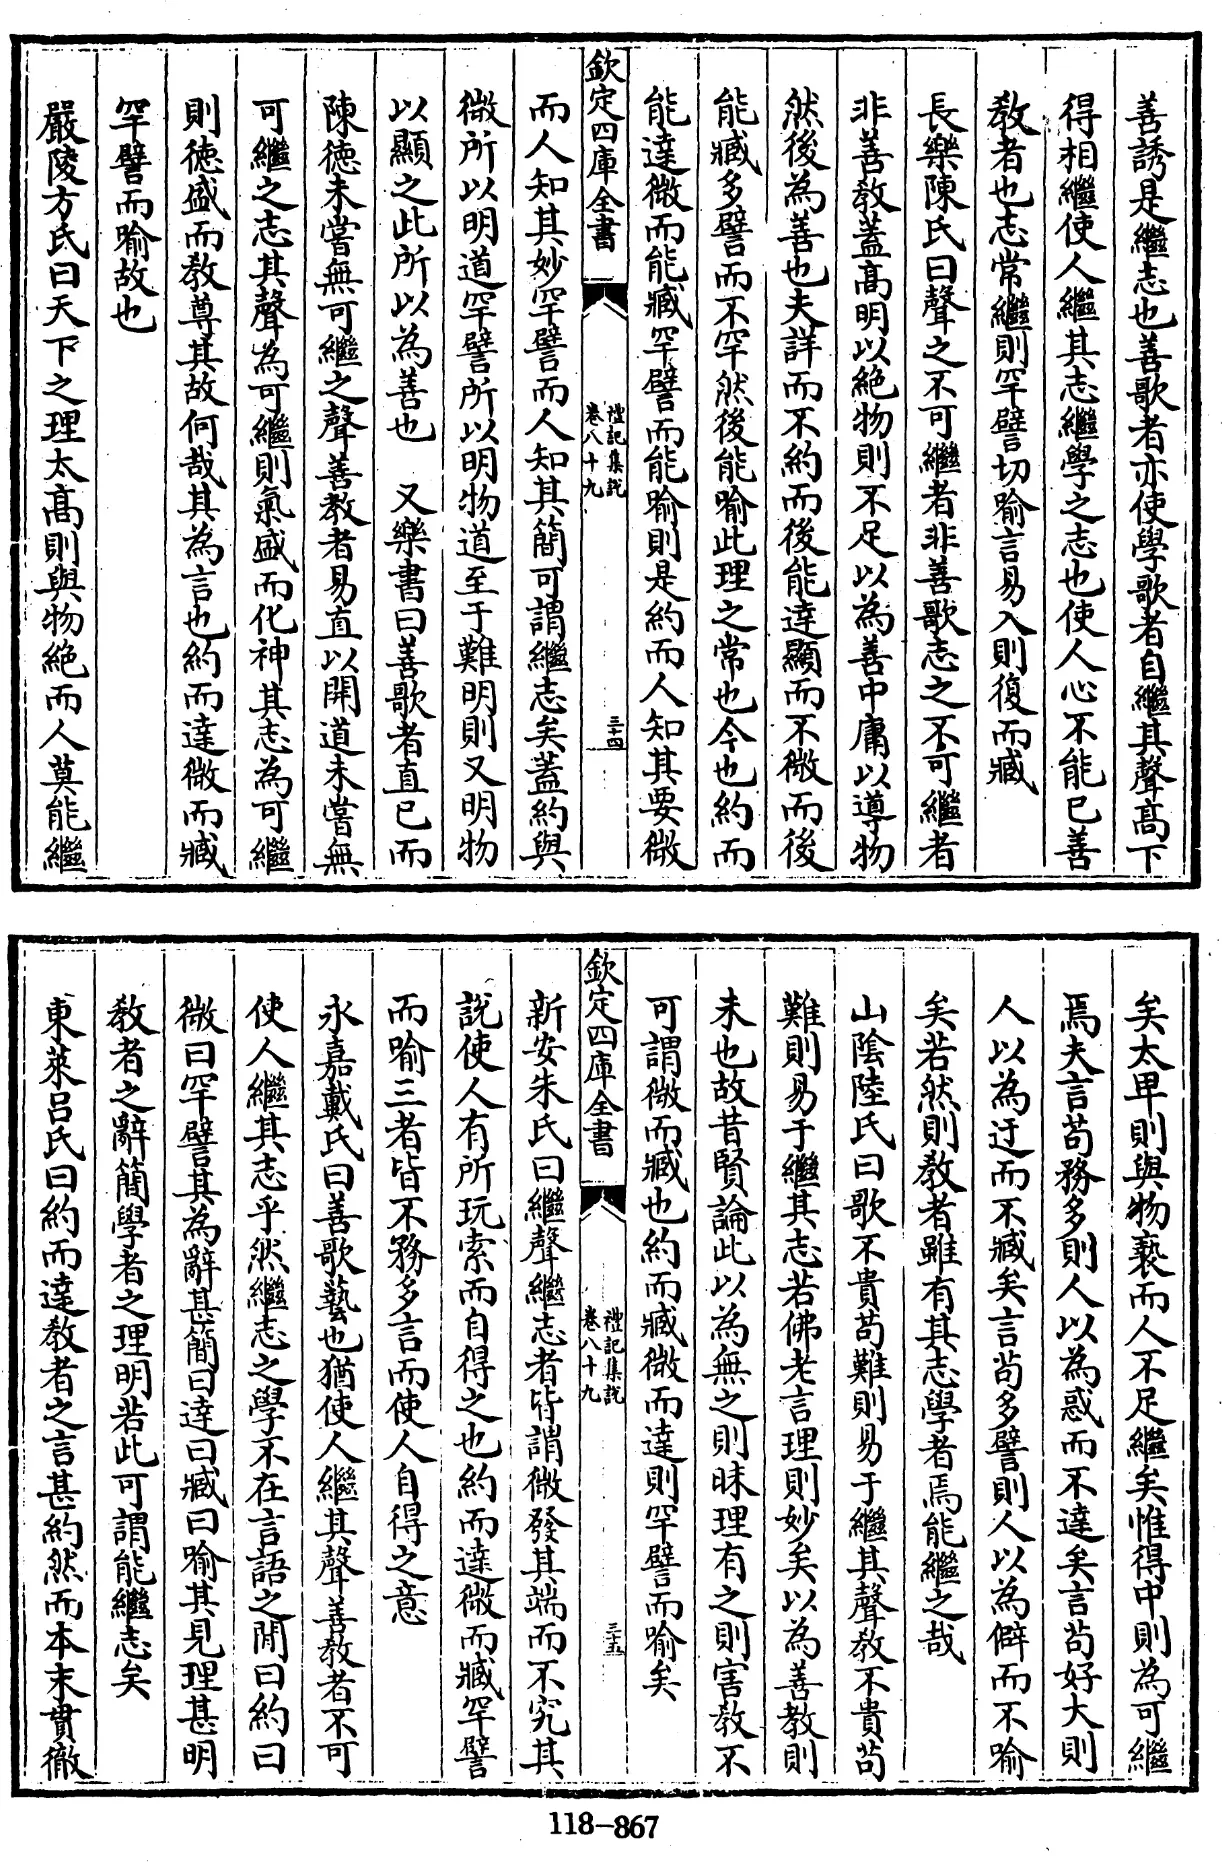 善誘是繼志也善歌者亦使學歌者自繼其聲高下
得相繼使人繼其志繼學之志也使人心不能已善
教者也志常繼則罕譬切喻言易入則復而臧
長樂陳氏曰聲之不可繼者非善歌志之不可繼者
非善教蓋高明以絶物則不足以為善中庸以導物
然後為善也夫詳而不約而後能達顯而不微而後
能臧多譬而不罕然後能喻此理之常也今也約而
能達微而能臧罕譬而能喻則是約而人知其要微
欽定四庫全書
禮記集説
卷八十九
三十四
而人知其妙罕譬而人知其簡可謂繼志矣蓋約與
微所以明道罕譬所以明物道至于難明則又明物
以顯之此所以為善也 又樂書曰善歌者直已而
陳德未嘗無可繼之聲善教者易直以開道未嘗無
可繼之志其聲為可繼則氣盛而化神其志為可繼
則德盛而教尊其故何哉其為言也約而達微而臧
罕譬而喻故也
嚴陵方氏曰天下之理太高則與物絶而人莫能繼
矣太卑則與物褻而人不足繼矣惟得中則為可繼
焉夫言苟務多則人以為惑而不達矣言苟好大則
人以為迂而不臧矣言苟多譬則人以為僻而不喻
矣若然則教者雖有其志學者焉能繼之哉
山陰陸氏曰歌不貴苟難則易于繼其聲教不貴苟
難則易于繼其志若佛老言理則妙矣以為善教則
未也故昔賢論此以為無之則昧理有之則害教不
可謂微而臧也約而臧微而達則罕譬而喻矣
欽定四庫全書
禮記集説
卷八十九
三十五
新安朱氏曰繼聲繼志者皆謂微發其端而不究其
説使人有所玩索而自得之也約而達微而臧罕譬
而喻三者皆不務多言而使人自得之意
永嘉戴氏曰善歌藝也猶使人繼其聲善教者不可
使人繼其志乎然繼志之學不在言語之間曰約曰
微曰罕譬其為辭甚簡曰達曰臧曰喻其見理甚明
教者之辭簡學者之理明若此可謂能繼志矣
東萊呂氏曰約而達教者之言甚約然而本末貫徹
118-867